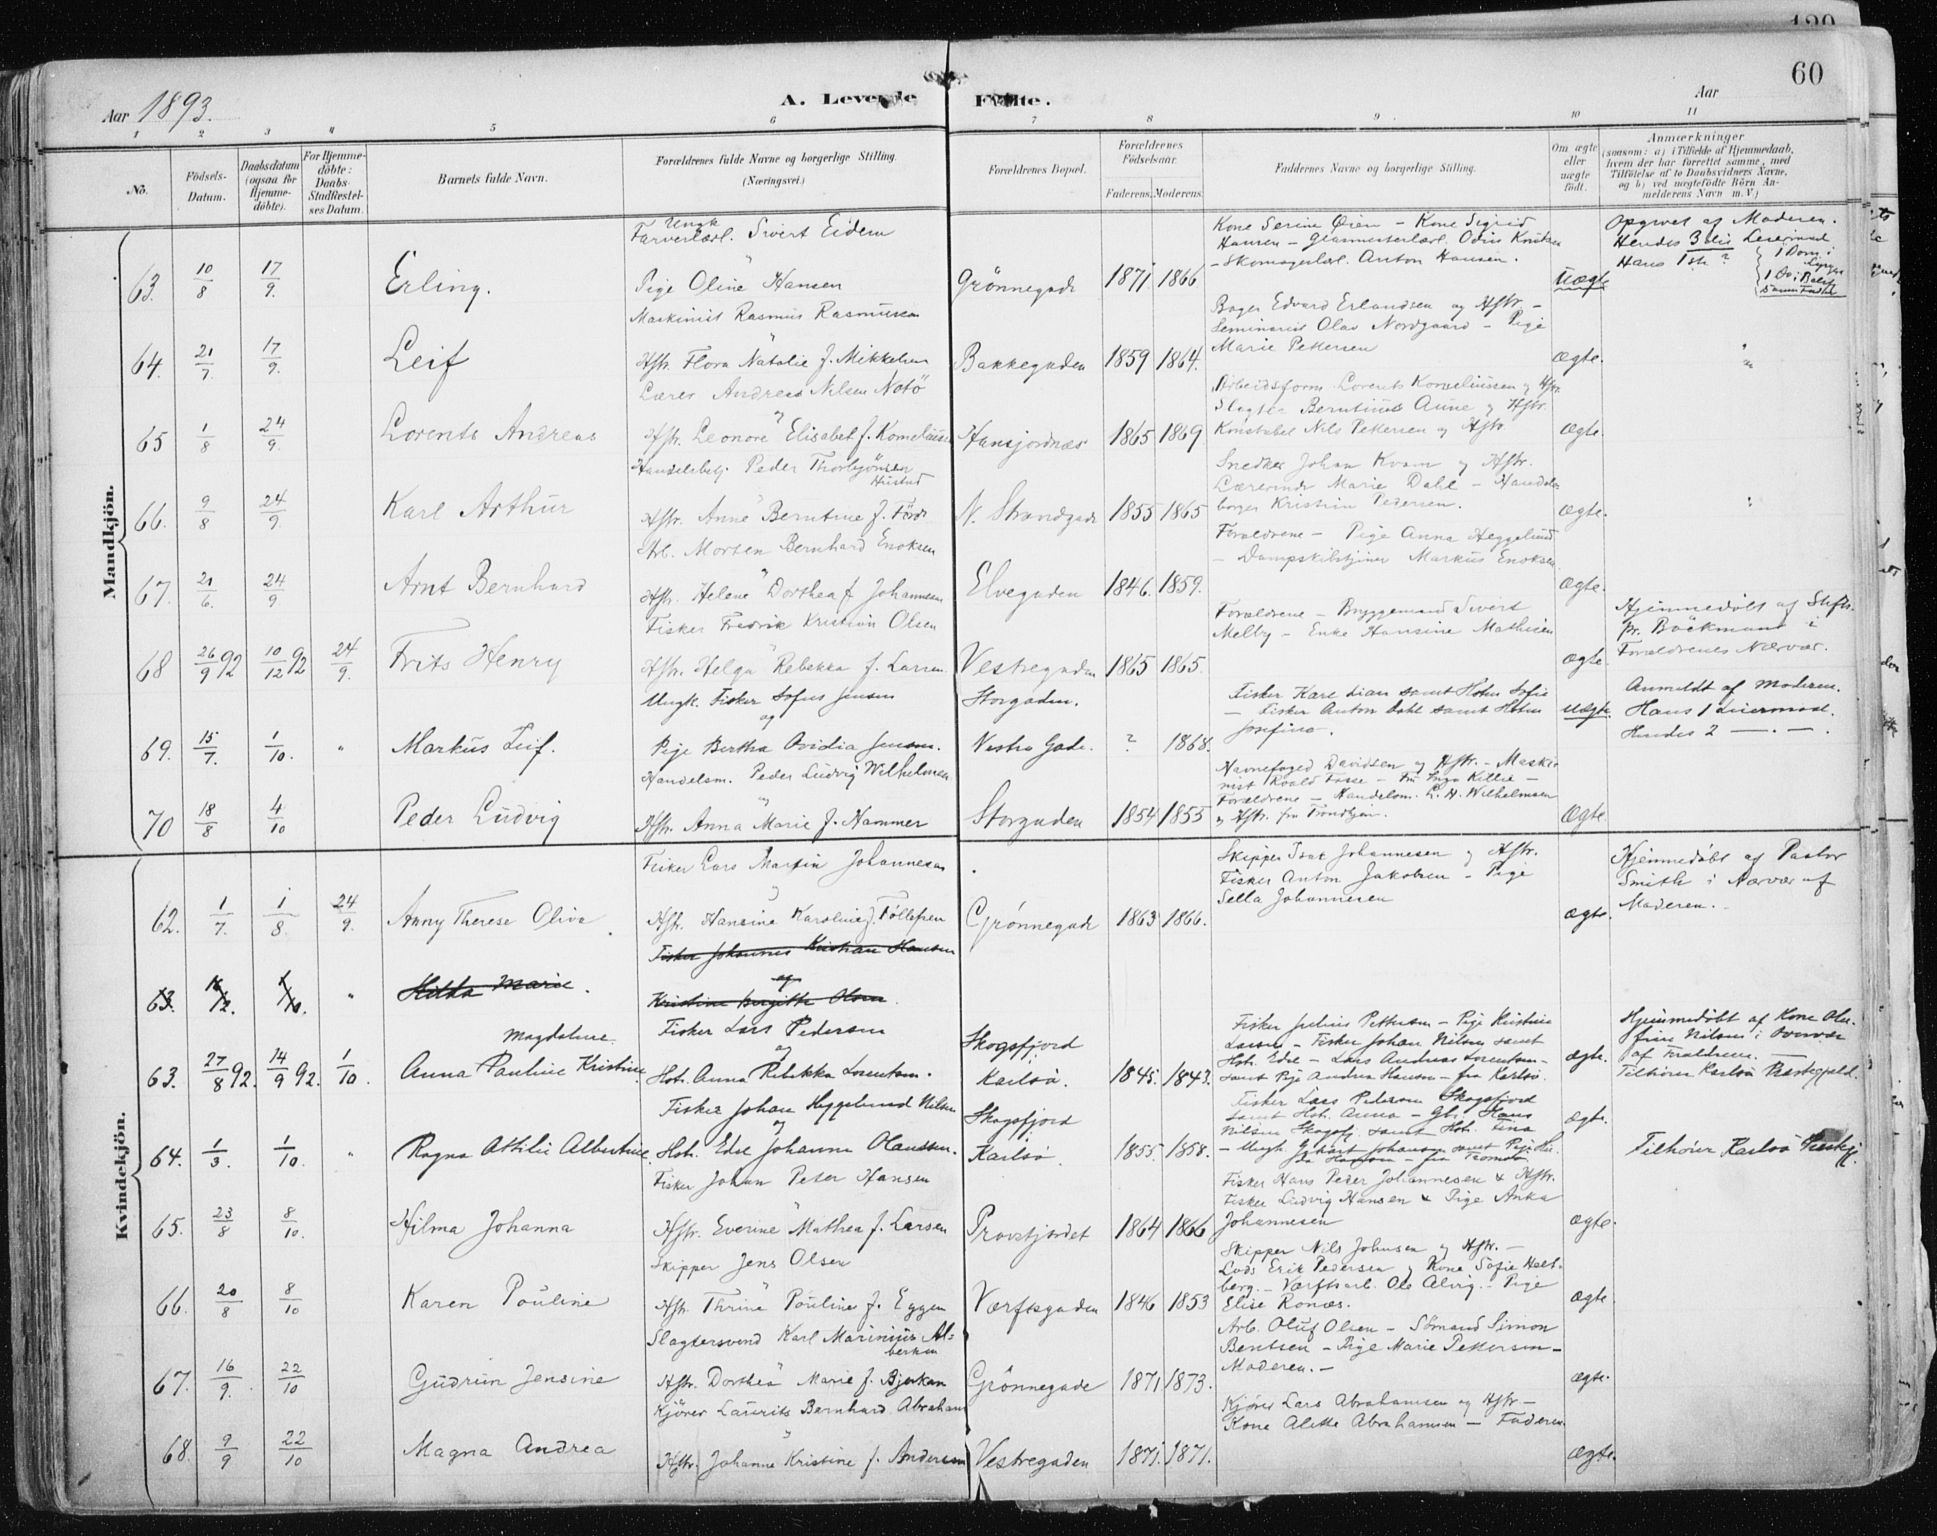 120
60
Aar 1893.
A. Levende Födte.
Aar
1 2 3 4 5 6 7 8 9 10 11
No.
Födsels-Datum.
Daabsdatum (ogsaa for Hjemme-döbte).
For Hjemme-döbte: Daabs-Stadfæstel-ses Datum.
Barnets fulde Navn.
Forældrenes fulde Navne og borgerlige Stilling. (Næringsvei.)
Forældrenes Bopæl.
Forældrenes Födselsaar.
Faderens. Moderens.
Faddernes Navne og borgerlige Stilling.
Om ægte eller uægte födt.
Anmærkninger
(saasom: a) i Tilfælde af Hjemmedaab,
hvem der har forrettet samme, med
Tilföielse af to Daabsvidners Navne,
og b) ved uægtefödte Börn An-
melderens Navn m. V.)
Mandkjön.
Ungk
Farverlærl. Sivert Eidem
Kone Serine Ören – Kone Sigrid
Hansen – Glasmesterlærl. Odin Knutsen
– Skomagerlærl. Anton Hansen.
Opgivet af Moderen.
Hendes 3die Leiermaal
Hans 1ste ?
63. 10/8 17/9. Erling. Pige Oline Hansen Grönnegade 1871 1866 Uægte
Maskinist Rasmus Rasmussen
Bager Edvard Erlandsen og Hstr. –
Seminarist Olav Nordgaard – Pige
Marie Pettersen
64. 21/7. 17/9. Leif Hstr. Flora Natalie f. Mikkelsen Bakkegaden 1859 1864. ægte.
Lærer Andreas Nilsen Notö
Arbeidsform. Lorents Korneliussen og Hstr.
Slagter Berntinus Aune og Hstr.
Konstabel Nils Pettersen og Hstr
65 1/8 24/9. Lorents Andreas Hstr. Leonore Elisabet f. Korneliussen Hansjordnæs 1865 1869 ægte.
Handelsbetj. Peder Thorbjörnsen
Hustad
Snedker Johan Kvam og Hstr.
Lærerinde Marie Dahl – Handels-
borger Kristian Pedersen.
66. 9/8 24/9. Karl Arthur Hstr. Anne Berntine f. Förde N. Strandgade 1855 1865 ægte.
Arb. Morten Bernhard Enoksen
Forældrene – Pige Anna Heggelund
– Dampskibstjener Markus Enoksen
67. 21/6. 24/9 Arnt Bernhard Hstr. Helene Dorthea f Johannesen Elvegaden 1846. 1859. ægte.
Fisker Fredrik Kristian Olsen
Forældrene – Bryggemand Sivert
Melby – Enke Hansine Mathisen
Hjemmedöbt af Stifts-
pr. Böckmann i
Forældrenes Nærvær.
68 26/9 92 10/12 92 24/9. Frits Henry Hstr. Helga Rebekka f. Larsen Vestregaden 1865 1865. ægte.
Ungk. Fisker Sofus Jensen
og
Storgaden.
– Fisker Anton Dahl samt Hstru
Josefine.
uægte.
Anmeldt af Moderen.
Hans 1 Leiermaal.
Hendes 2 – . –
69. 15/7. 1/10. " Markus Leif. Pige Bertha Ovidia Jensen. Vestre Gade. ? 1868.
Handelsm. Peder Ludvig Wilhelmsen
Havnefoged Davidsen og Hstr. – Maski-
nist Roald Fosse – Frk Inga Killie –
Forældrene – Handelsm. L. H. Wilhelmsen
og Hstr. fra Trondhjem.
70 18/8 4/10 Peder Ludvig Hstr. Anna Marie f. Hammer Storgaden 1854 1855 Ægte.
Kvindekjön.
Fisker Lars Martin Johannesen
Skipper Isak Johannesen og Hstr.
Fisker Anton Jakobsen – Pige
Sella Johannesen
Hjemmedöbt af Pastor
Smith i Nærvær af
Moderen.
62. 1/7. 1/8. 24/9. Anny Therese Oliva Hstr. Hansine Karoline f. Tollefsen Grönnegade 1863 1866. ægte.
Fisker Johannes Kristian Hansen
og
63. " Hilda Marie. Kristine Birgitte Olsen.
Magdalene
Fisker Lars Pedersen
og
Skogsfjord
Fisker Julius Pettersen – Pige Kristine
Larsen – Fisker Johan Nilsen samt
Hstr. Edel – Lars Andreas Lorentsen –
samt Pige Andrea Hansen – fra Karlsö.
Hjemmedöbt af Kone Ole-
fine Nilsen i Overvær
af Forældrene. –
Tilhörer Karlsö Præstegjæld.
63. 27/8 92. 14/9 92. 1/10. Anna Pauline Kristine Hstr. Anna Rebekka Lorentsen. Karlsö. 1845. 1843. ægte.
Fisker Johan Heggelund Nilsen
og
Skogsfjord
Fisker Lars Pedersen Skogsfjord
samt Hstr. Anna – Gbr. Hans
Nilsen Skogsfj. samt Hstr. Fina
ægte.
64. 1/3. 1/10. " Ragna Attilie Albertine. Hstr. Edel Johanna Olaussen. Karlsö. 1855. 1858.
Tilhörer Karlsö Præstegj.
Fisker Johan Peter Hansen
Fisker Hans Peter Johannesen & Hstr.
Fisker Ludvig Hansen & Pige Anka
Johannesen
65. 23/8 8/10. Hilma Johanna Hstr. Everine Mathea f. Larsen Provstjordet 1864 1866 ægte.
Skipper Jens Olsen
Skipper Nils Johnsen og Hstr. –
Lods Erik Pedersen og Kone Sofie Helt-
berg. – Værftsarb. Ole Alvig. – Pige
Elise Ronæs.
66. 20/8 8/10 Karen Pouline Hstr. Thrine Pouline f. Eggen Værftsgaden 1846 1853 ægte.
Slagtersvend Karl Marinius Al-
bertsen
Arb. Oluf Olsen – Sömand Simon
Bentsen – Pige Marie Pettersen –
Moderen. –
67. 16/9. 22/10 Gudrun Jensine Hstr. Dorthea Marie f. Bjerkan Grönnegade 1871 1873. ægte.
Kjörer Laurits Bernhard Abraham
Kjörer Lars Abrahamsen og Hstr –
Kone Alette Abrahamsen – Faderen
68. 9/9 22/10 Magna Andrea Hstr. Johanne Kristine f. Andersen Vestregaden 1871. 1871. ægte.